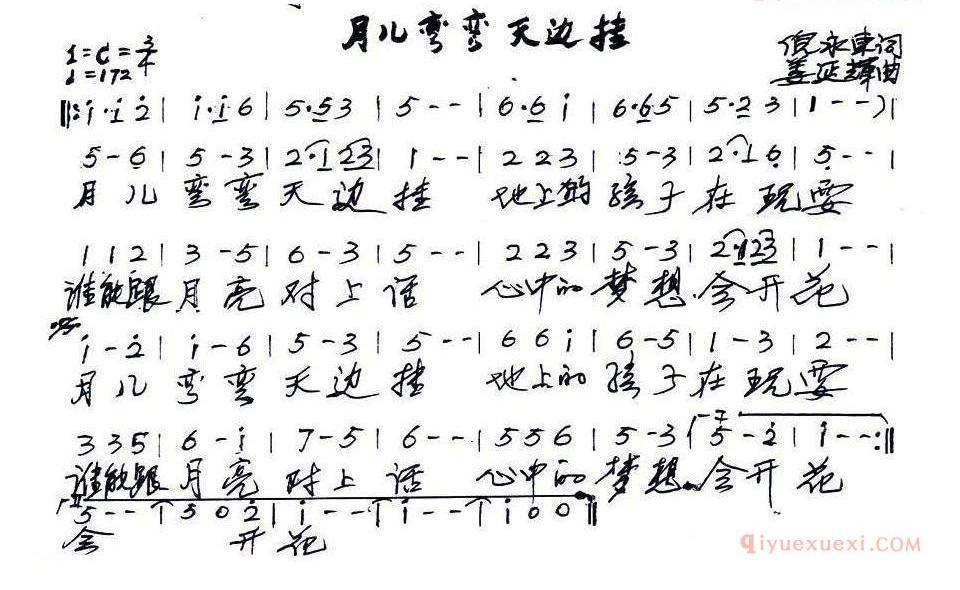 月儿弯弯天边挂
1=C=3/4
♩=172
倪永东词
姜延辉曲
‖: i·i 2̇ | i·i 6 | 5·5 3 | 5 - - | 6·6 i | 6·6 5 | 5·2 3 | 1 - - )
5 - 6 | 5 - 3 | 2·1 2 3 | 1 - - | 2 2 3 | 5 - 3 | 2·1 6̣ | 5̣ - - |
月儿弯弯天边挂 地上的孩子在玩耍
1 1 2 | 3 - 5 | 6 - 3 | 5 - - | 2 2 3 | 5 - 3 | 2·1 2 3 | 1 - - |
谁能跟月亮对上话 心中的梦想会开花
i - 2̇ | i - 6 | 5 - 3 | 5 - - | 6 6 i | 6 - 5 | 1 - 3 | 2 - - |
月儿弯弯天边挂 地上的孩子在玩耍
3 3 5 | 6 - i | 7 - 5 | 6 - - | 5 5 6 | 5 - 3 | 5 - 2̇ | i - - :‖
谁能跟月亮对上话 心中的梦想会开花
5 - - | 5 0 2̇ | i - - | i - - | i 0 0 ‖
会开花
qiyuexuexi.COM